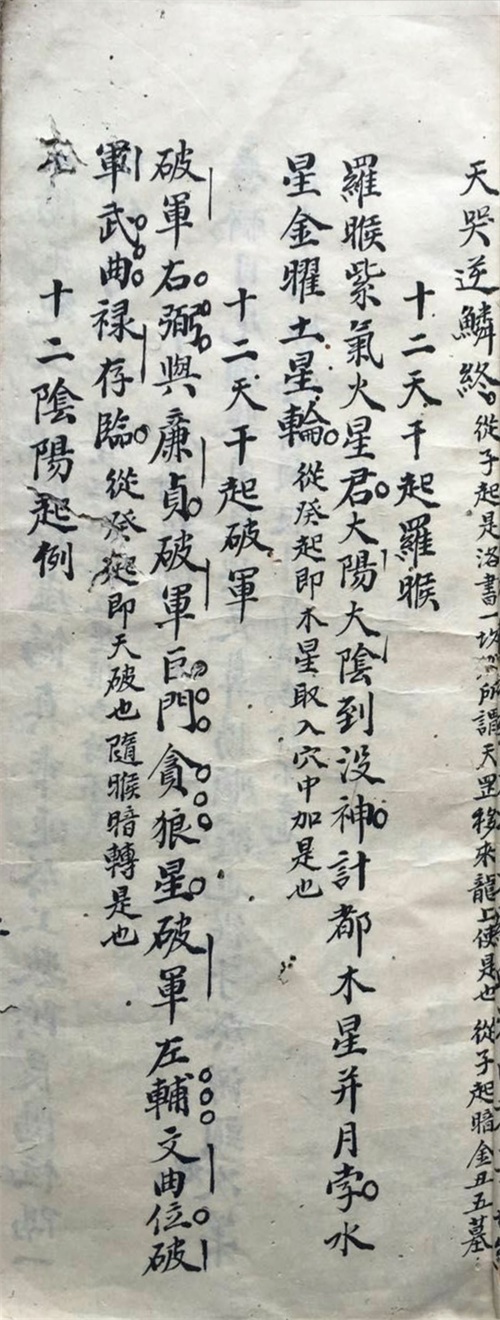 天哭逆鱗終從子起是洛書一坎所謂天罡移來龍上使是也從子起暗金丑五墓
十二天干起羅睺
羅睺紫氣火星君大陽大陰到没神計都木星并月孛水
星金曜土星輪從癸起即木星取入穴中加是也
十二天干起破軍
破軍右弼與廉貞破軍巨門貪狼星破軍左輔文曲位破
軍武曲禄存臨從癸起即天破也隨睺暗轉是也
十二陰陽起例